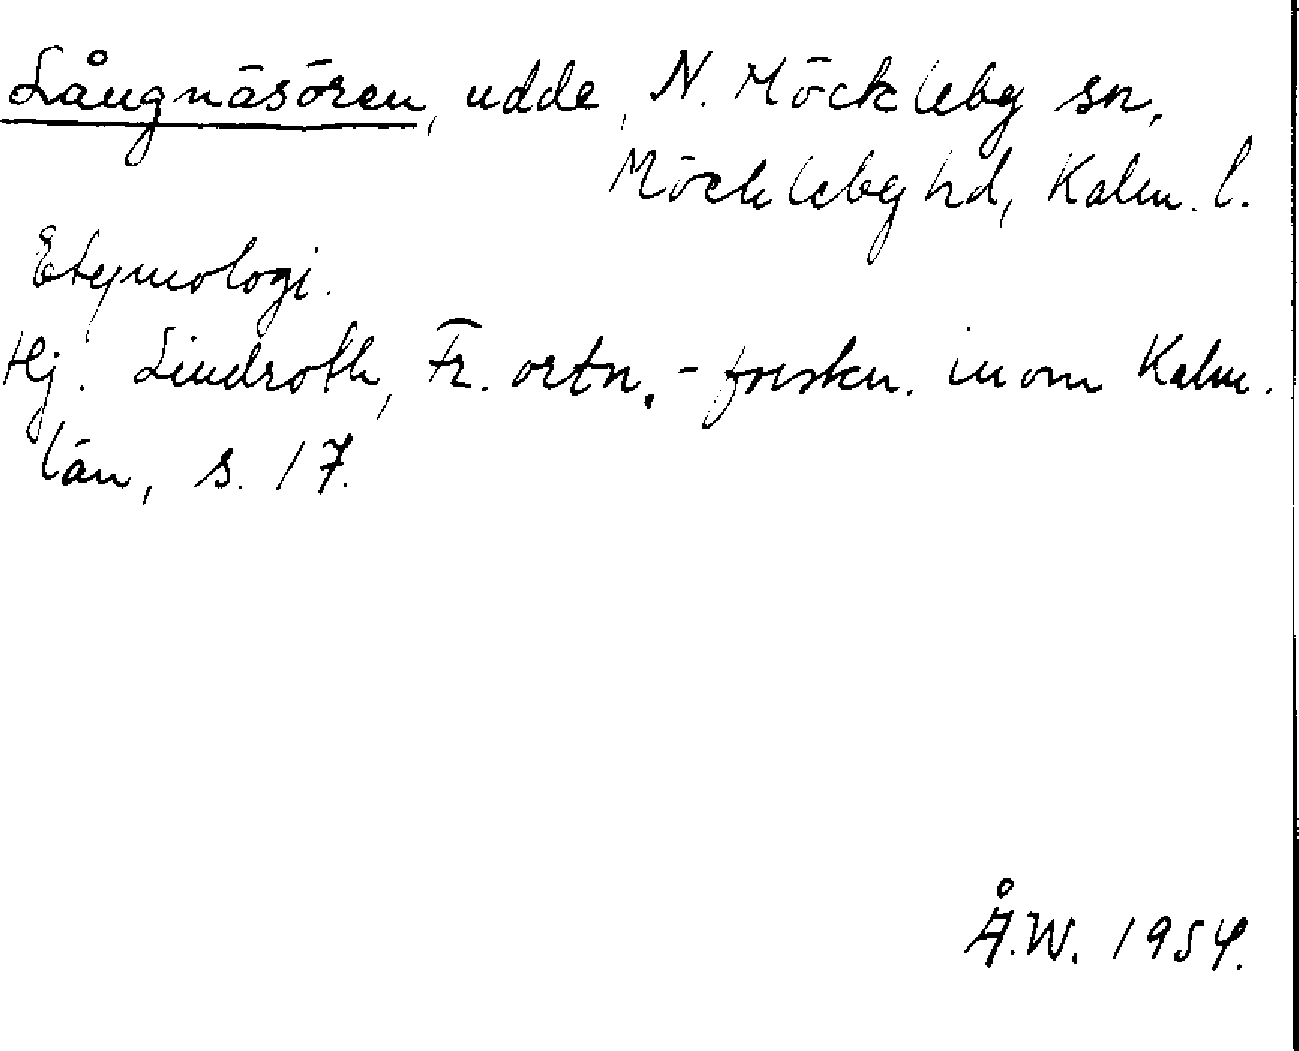 Långnäsören, udde, N. Möckleby sn,
Möckleby hd, Kalm. l.
Etymologi.
Hj. Lindroth, Fr. ortn.-forskn. inom Kalm.
län, s. 17.
Å.W. 1954.